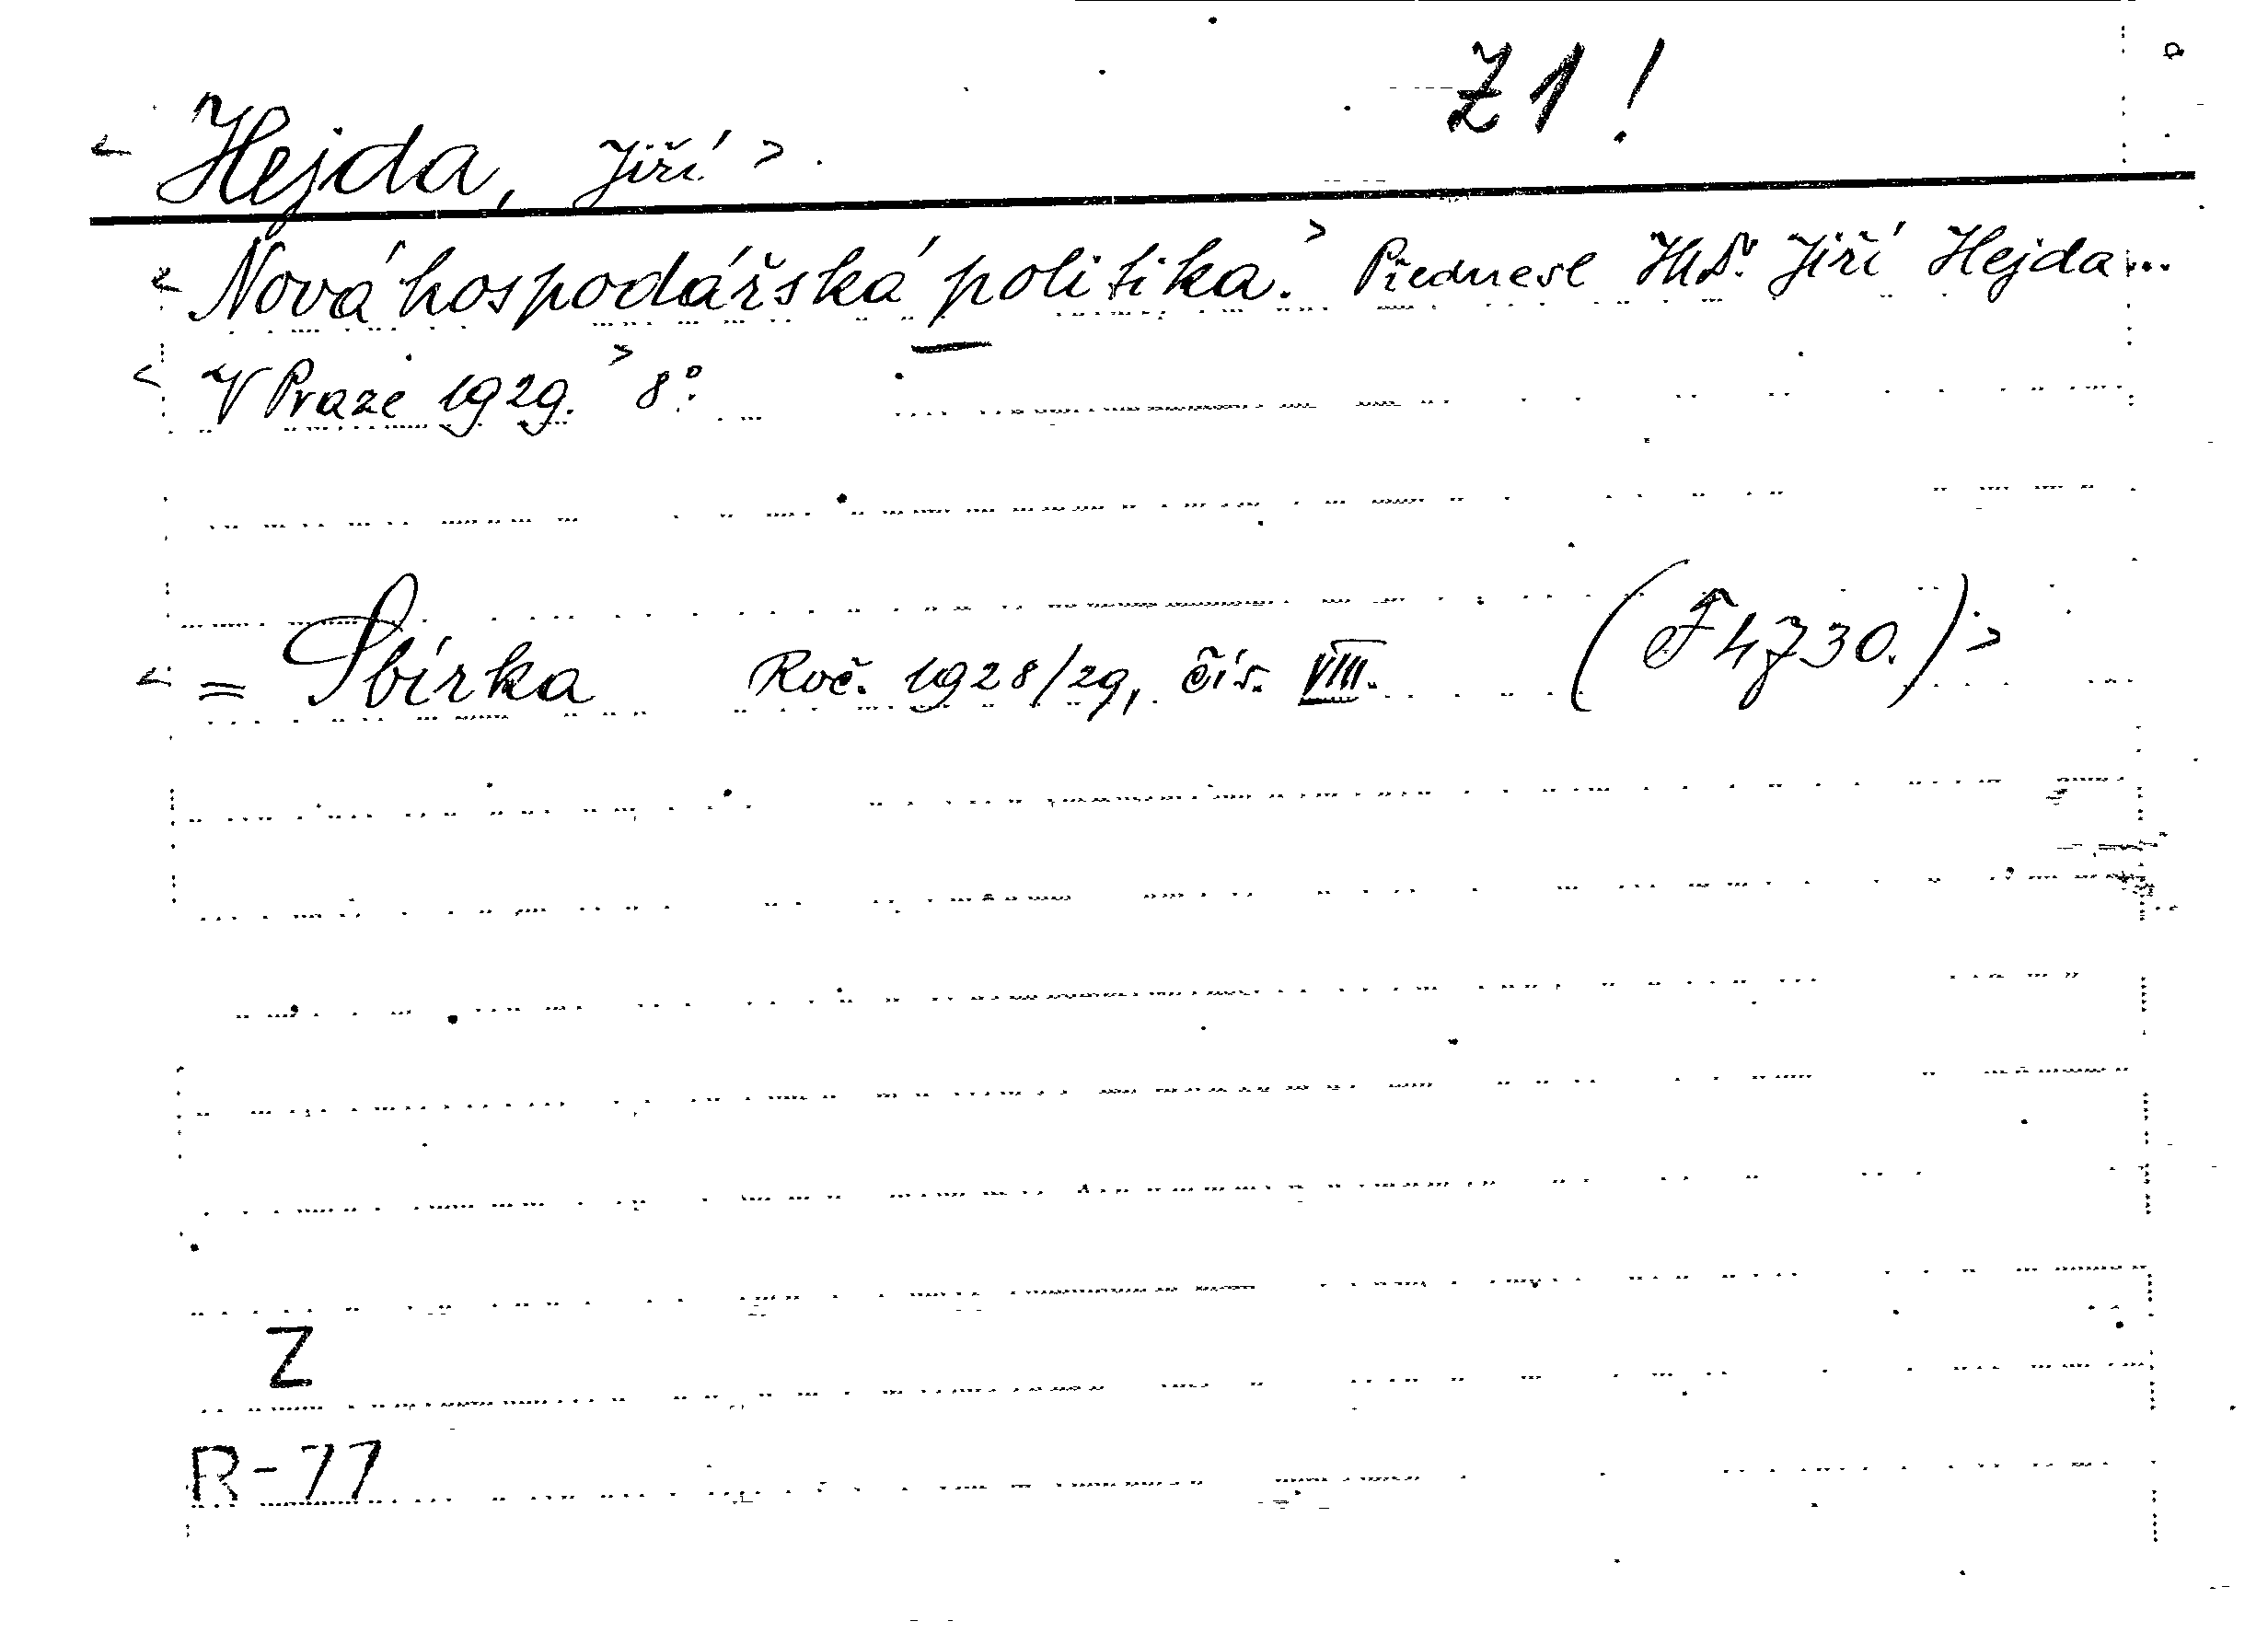 Z1!
< Hejda, Jiří >.
< Nová hospodářská politika.> Přednesl JUDr. Jiří Hejda...
< V Praze 1929.> 8°.
< = Sbírka Roč. 1928/29, čís. VIII. (F 4730.) >
Z
R-77